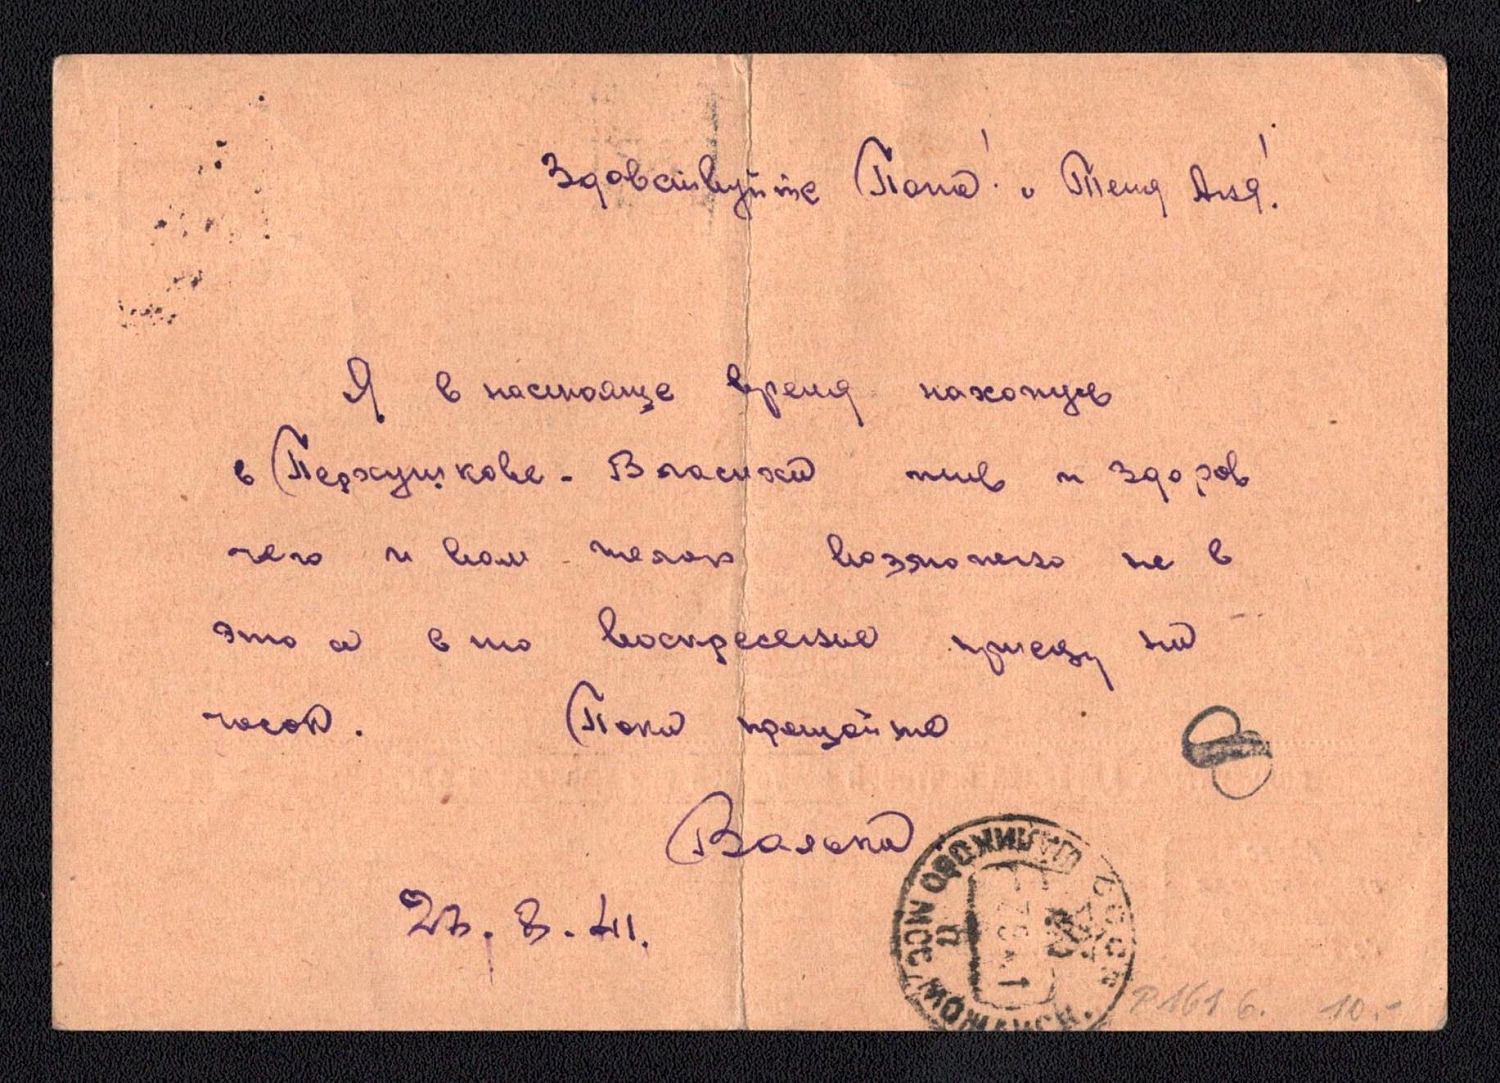 Здовствуйте Папа! и Тетя Аня!
Я в настояще время нахожусь
в Перхушкове - Власиха жив и здоров
чего и вам желаю возможно не в
это а в то воскресенье приеду на
часок. Пока прощайте
Валька
27. 8. 41.
СССР
P 161 б. 10.-